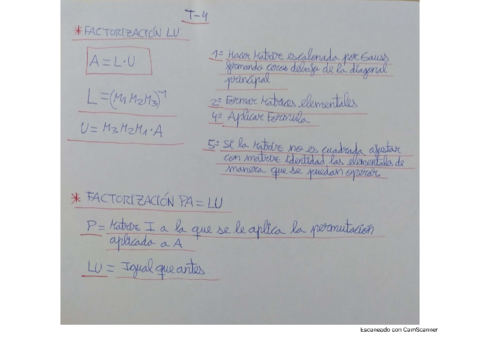 T-4
* FACTORIZACIÓN LU
A = L·U
L = (M1 M2 M3)^-1
U = M3 M2 M1 · A
1= Hacer Matriz escalonada por Gauss
formando ceros debajo de la diagonal
principal
2= Formar Matrices elementales
4= Aplicar Formula
5= Si la Matriz no es cuadrada ajustar
con matriz Identidad las elementales de
manera que se puedan operar
* FACTORIZACIÓN PA = LU
P = Matriz I a la que se le aplica la permutación
aplicada a A
LU = Igual que antes
Escaneado con CamScanner